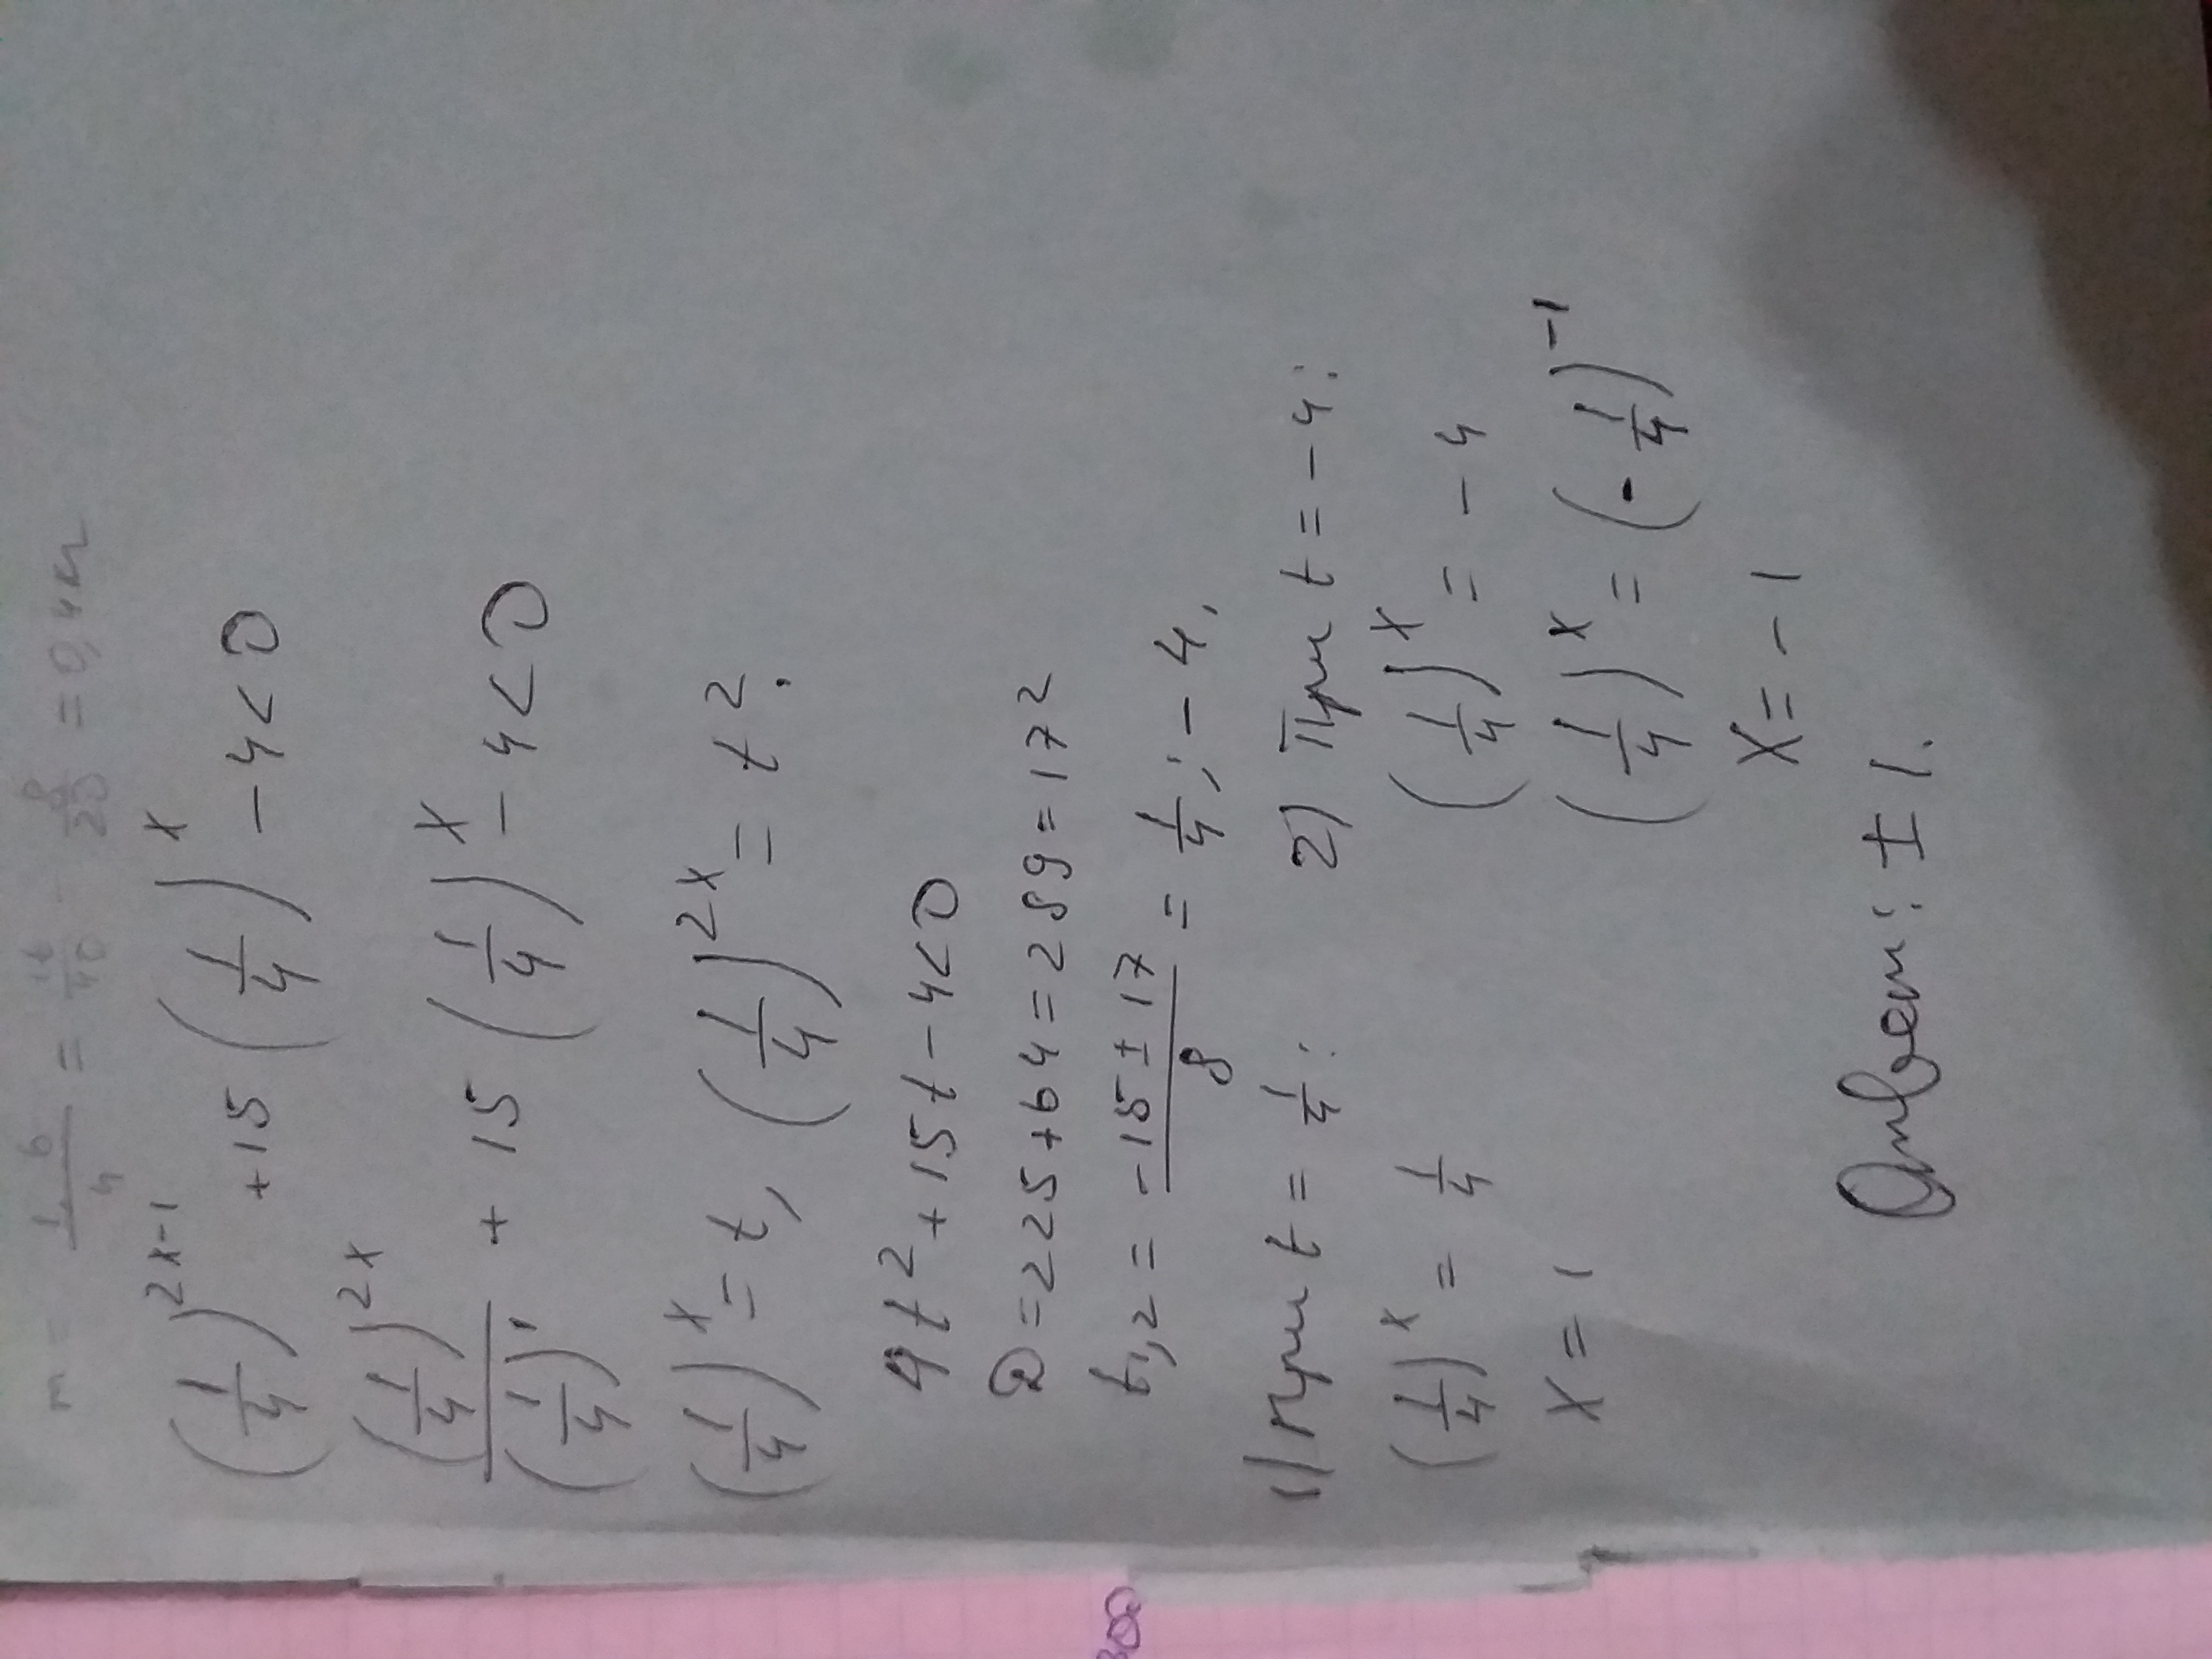 = 16/40 = 8/20 = 0,4м
(1/4)^(2x-1) + 15 (1/4)^x - 4 < 0
(1/4)^(2x) / (1/4)^1 + 15 (1/4)^x - 4 < 0
(1/4)^x = t, (1/4)^(2x) = t^2.
4t^2 + 15t - 4 < 0
D = 225 + 64 = 289 = 17^2
t1,2 = (-15 ± 17)/8 = 1/4; -4.
1) При t = 1/4: 2) При t = -4:
(1/4)^x = 1/4 (1/4)^x = -4
x = 1 (1/4)^x = (-1/4)^(-1)
x = -1
Ответ: ± 1.